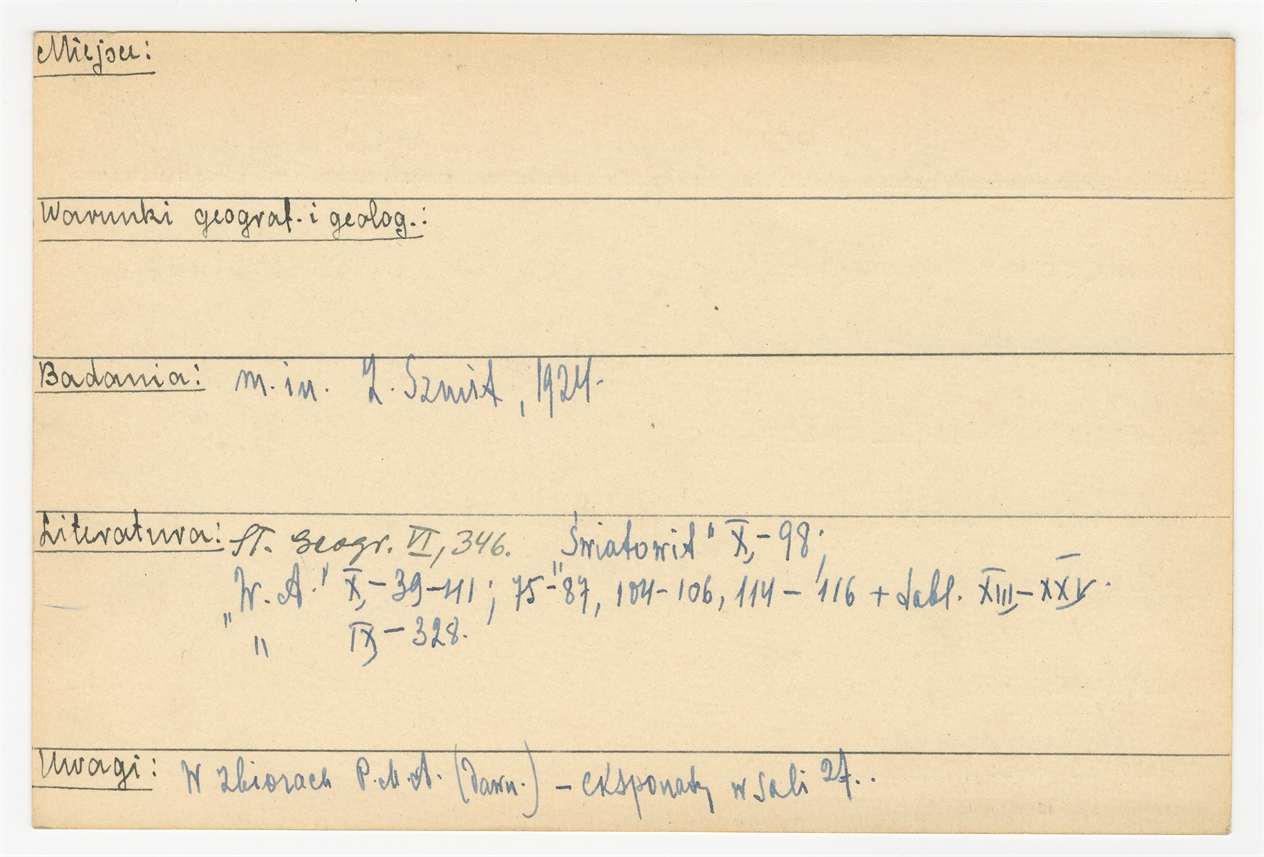 Miejsce:
Warunki geograf. i geolog.:
Badania: m. in. Z. Szmit, 1924.
Literatura: Sł. Geogr. VI, 346. „Światowit" X, - 98;
„W. A." X, - 39-41; 75-87, 104-106, 114-116 + tabl. XIII-XXV.
" IX - 328.
Uwagi: W zbiorach P.M.A. (dawn.) - eksponaty w sali 27..